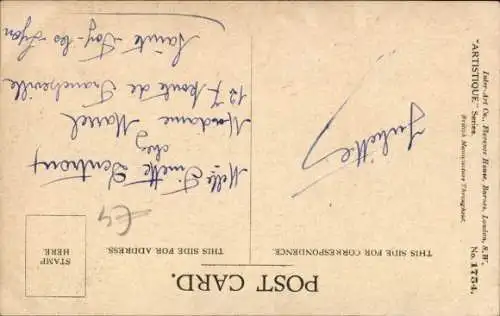 POST CARD.
THIS SIDE FOR CORRESPONDENCE.
THIS SIDE FOR ADDRESS.
STAMP
HERE.
£4
Melle
chez
Madame Marcel
127 Route de Francheville
Sainte Foy-les-Lyon
Juliette
Inter-Art Co., Florence House, Barnes, London, S.W.
"ARTISTIQUE" Series. No. 1754.
British Manufacture Throughout.